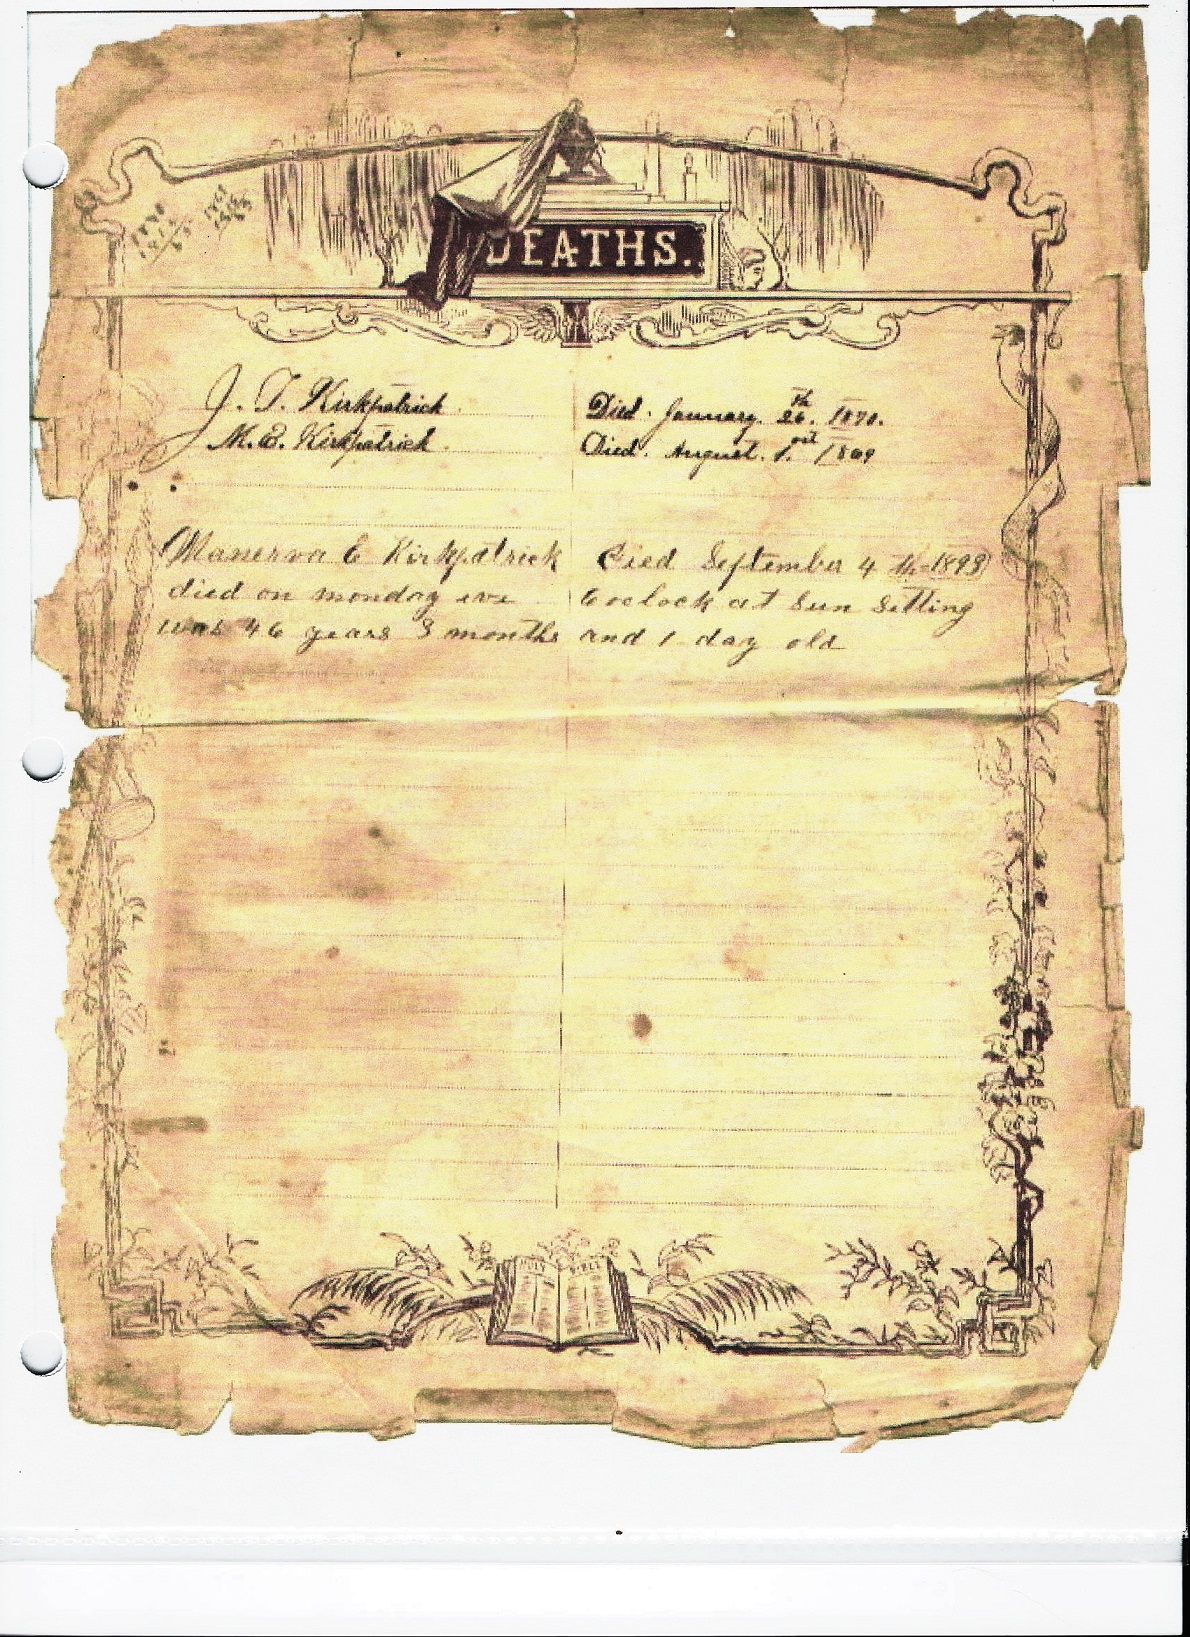 DEATHS.
J. T. Kirkpatrick Died. January. 26.th 1870.
M. E. Kirkpatrick Died. August. 1.st 1869
Manerva E Kirkpatrick Died September 4 th-1893
died on monday eve 6 oclock at Sun Setting
was 46 years 3 months and 1 day old
HOLY BIBLE